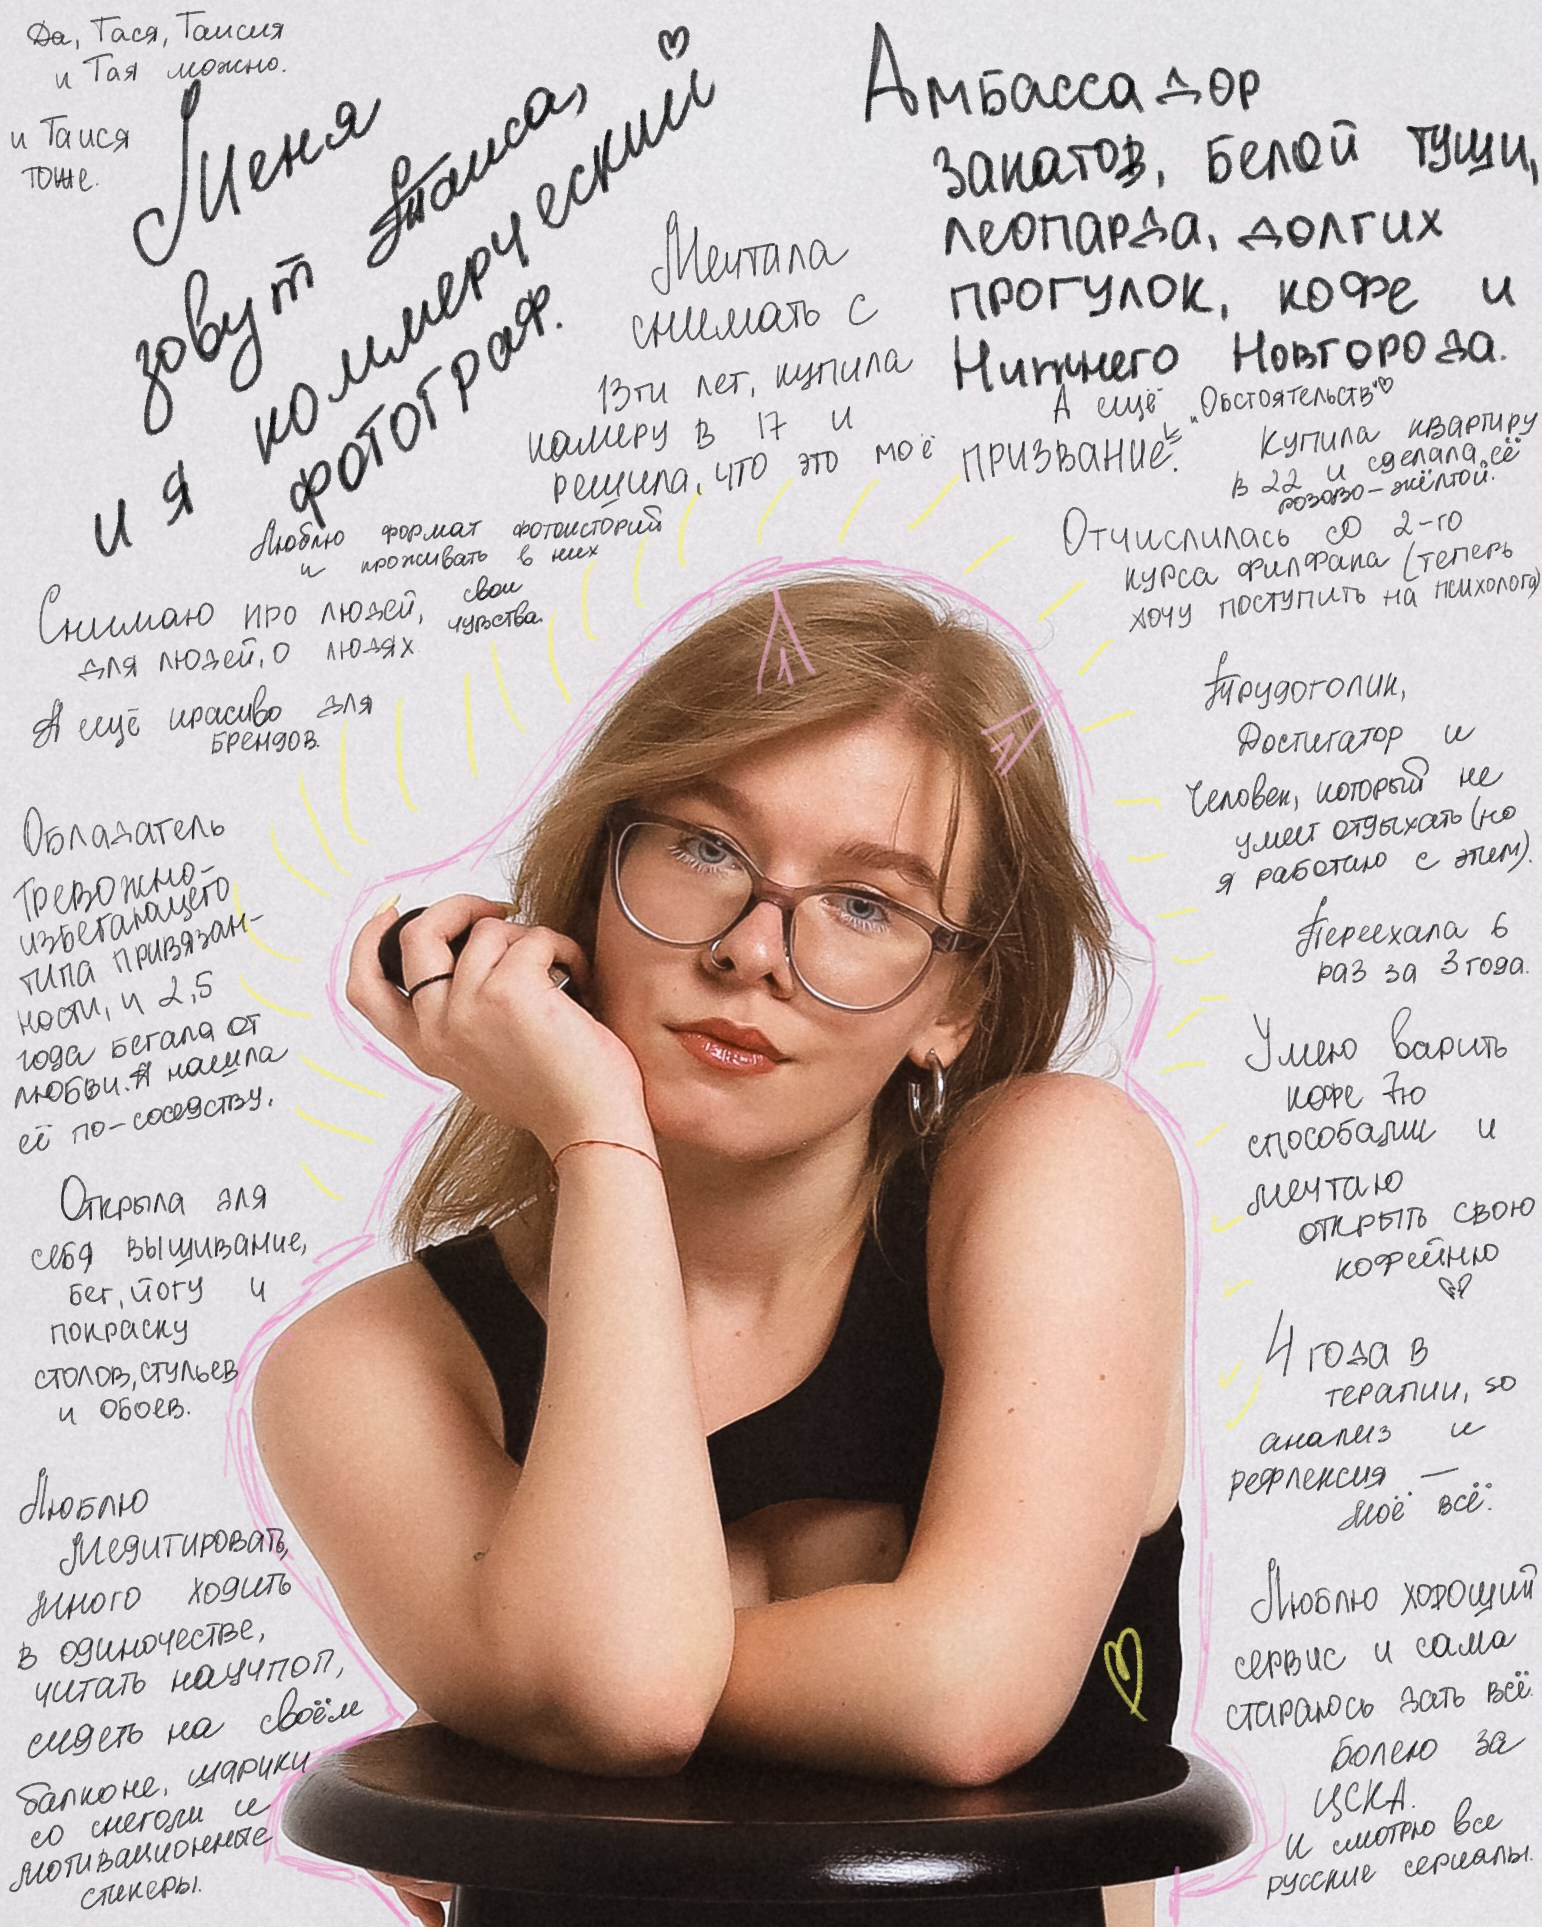 Да, Тася, Таисия
и Тая можно.
и Таися
тоже.
Меня
зовут Таиса,
и я коммерческий
фотограф.
Амбассадор
закатов, белой туши,
леопарда, долгих
прогулок, кофе и
Нижнего Новгорода.
А ещё "Обстоятельств"
Мечтала
снимать с
13ти лет, купила
камеру в 17 и
решила, что это моё призвание.
Купила квартиру
в 22 и сделала её
розово-жёлтой.
Отчислилась со 2-го
курса филфака (теперь
хочу поступить на психолога)
Люблю формат фотоисторий
и проживать в них
свои
чувства.
Снимаю про людей,
для людей, о людях
А ещё красиво для
брендов.
Трудоголик,
Достигатор и
Человек, который не
умеет отдыхать (но
я работаю с этим).
Обладатель
тревожно-
избегающего
типа привязан-
ности, и 2,5
года бегала от
любви. А нашла
её по-соседству.
Переехала 6
раз за 3 года.
Умею варить
кофе 7ю
способами и
мечтаю
открыть свою
кофейню
Открыла для
себя вышивание,
бег, йогу и
покраску
столов, стульев
и обоев.
4 года в
терапии, so
анализ и
рефлексия —
моё всё.
Люблю
медитировать,
много ходить
в одиночестве,
читать научпоп,
сидеть на своём
балконе, шарики
со снегом и
мотивационные
стикеры.
Люблю хороший
сервис и сама
стараюсь дать всё.
Болею за
ЦСКА.
И смотрю все
русские сериалы.